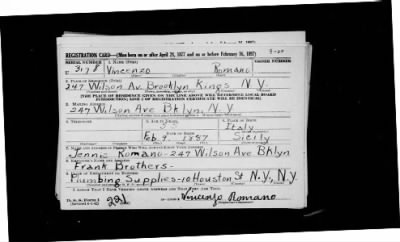 REGISTRATION CARD—(Men born on or after April 28, 1877 and on or before February 16, 1897)
SERIAL NUMBER 1. NAME (Print) ORDER NUMBER
U 3178 Vincenzo Romano
2. PLACE OF RESIDENCE (Print)
247 Wilson Av. Brooklyn Kings N.Y.
[THE PLACE OF RESIDENCE GIVEN ON THE LINE ABOVE WILL DETERMINE LOCAL BOARD
JURISDICTION; LINE 2 OF REGISTRATION CERTIFICATE WILL BE IDENTICAL]
3. MAILING ADDRESS
247 Wilson Ave Bklyn, N.Y
4. TELEPHONE 5. AGE IN YEARS 6. PLACE OF BIRTH
Italy
DATE OF BIRTH
Feb 9 1887 Sicily
7. NAME AND ADDRESS OF PERSON WHO WILL ALWAYS KNOW YOUR ADDRESS
Jennie Romano-247 Wilson Ave Bklyn
8. EMPLOYER'S NAME AND ADDRESS
Frank Brothers-
9. PLACE OF EMPLOYMENT OR BUSINESS
Plumbing Supplies-10 Houston St N.Y., N.Y.
I AFFIRM THAT I HAVE VERIFIED ABOVE ANSWERS AND THAT THEY ARE TRUE.
D. S. S. Form 1
Vincenzo Romano